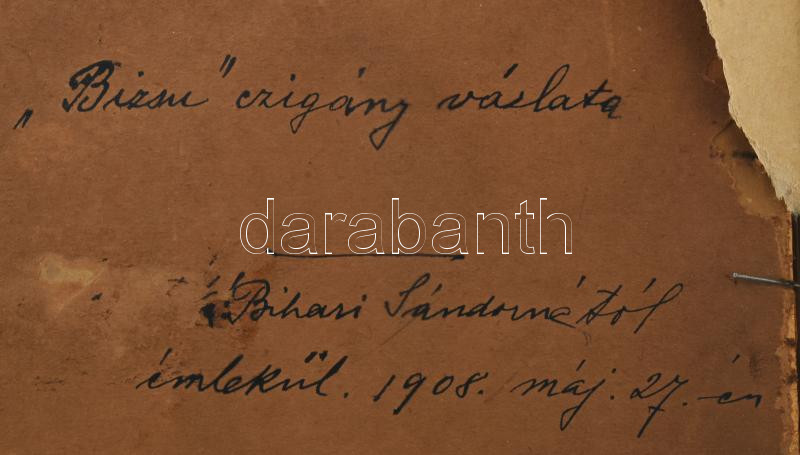 „Bizsu” czigány vázlata
darabanth
Bihari Sándornétól
emlékül. 1908. máj. 27.-én